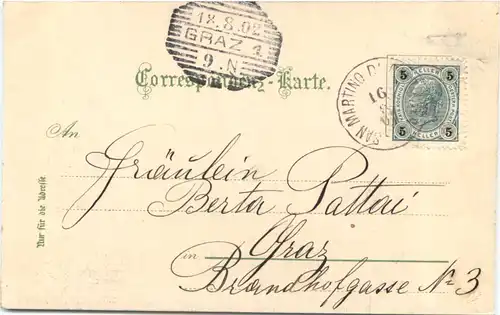 18.8.02
GRAZ 1
9.N
Correspondenz-Karte.
SAN MARTINO D
16
5 HELLER 5
5 HELLER 5
An
Fräulein
Berta Pattai
in Graz
Brandhofgasse No 3
Nur für die Adresse